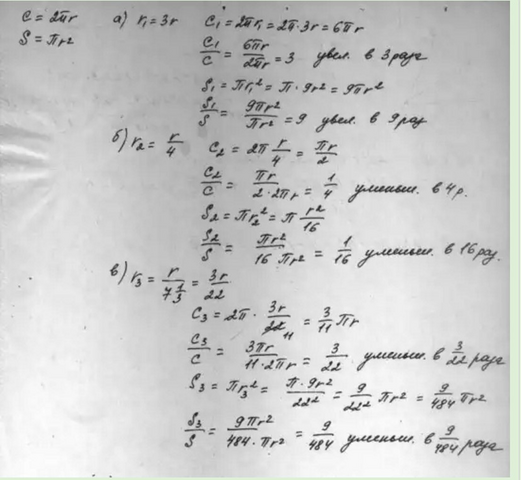 C = 2πr
S = πr²
а) r₁ = 3r C₁ = 2πr₁ = 2π·3r = 6πr
C₁/C = 6πr/2πr = 3 увел. в 3 раза
S₁ = πr₁² = π·9r² = 9πr²
S₁/S = 9πr²/πr² = 9 увел. в 9 раз
б) r₂ = r/4 C₂ = 2π r/4 = πr/2
C₂/C = πr/2·2πr = 1/4 уменьш. в 4 р.
S₂ = πr₂² = π r²/16
S₂/S = πr²/16πr² = 1/16 уменьш. в 16 раз.
в) r₃ = r/7 1/3 = 3r/22
C₃ = 2π · 3r/22 11 = 3/11 πr
C₃/C = 3πr/11·2πr = 3/22 уменьш. в 3/22 раза
S₃ = πr₃² = π·9r²/22² = 9/22² πr² = 9/484 πr²
S₃/S = 9πr²/484·πr² = 9/484 уменьш. в 9/484 раза